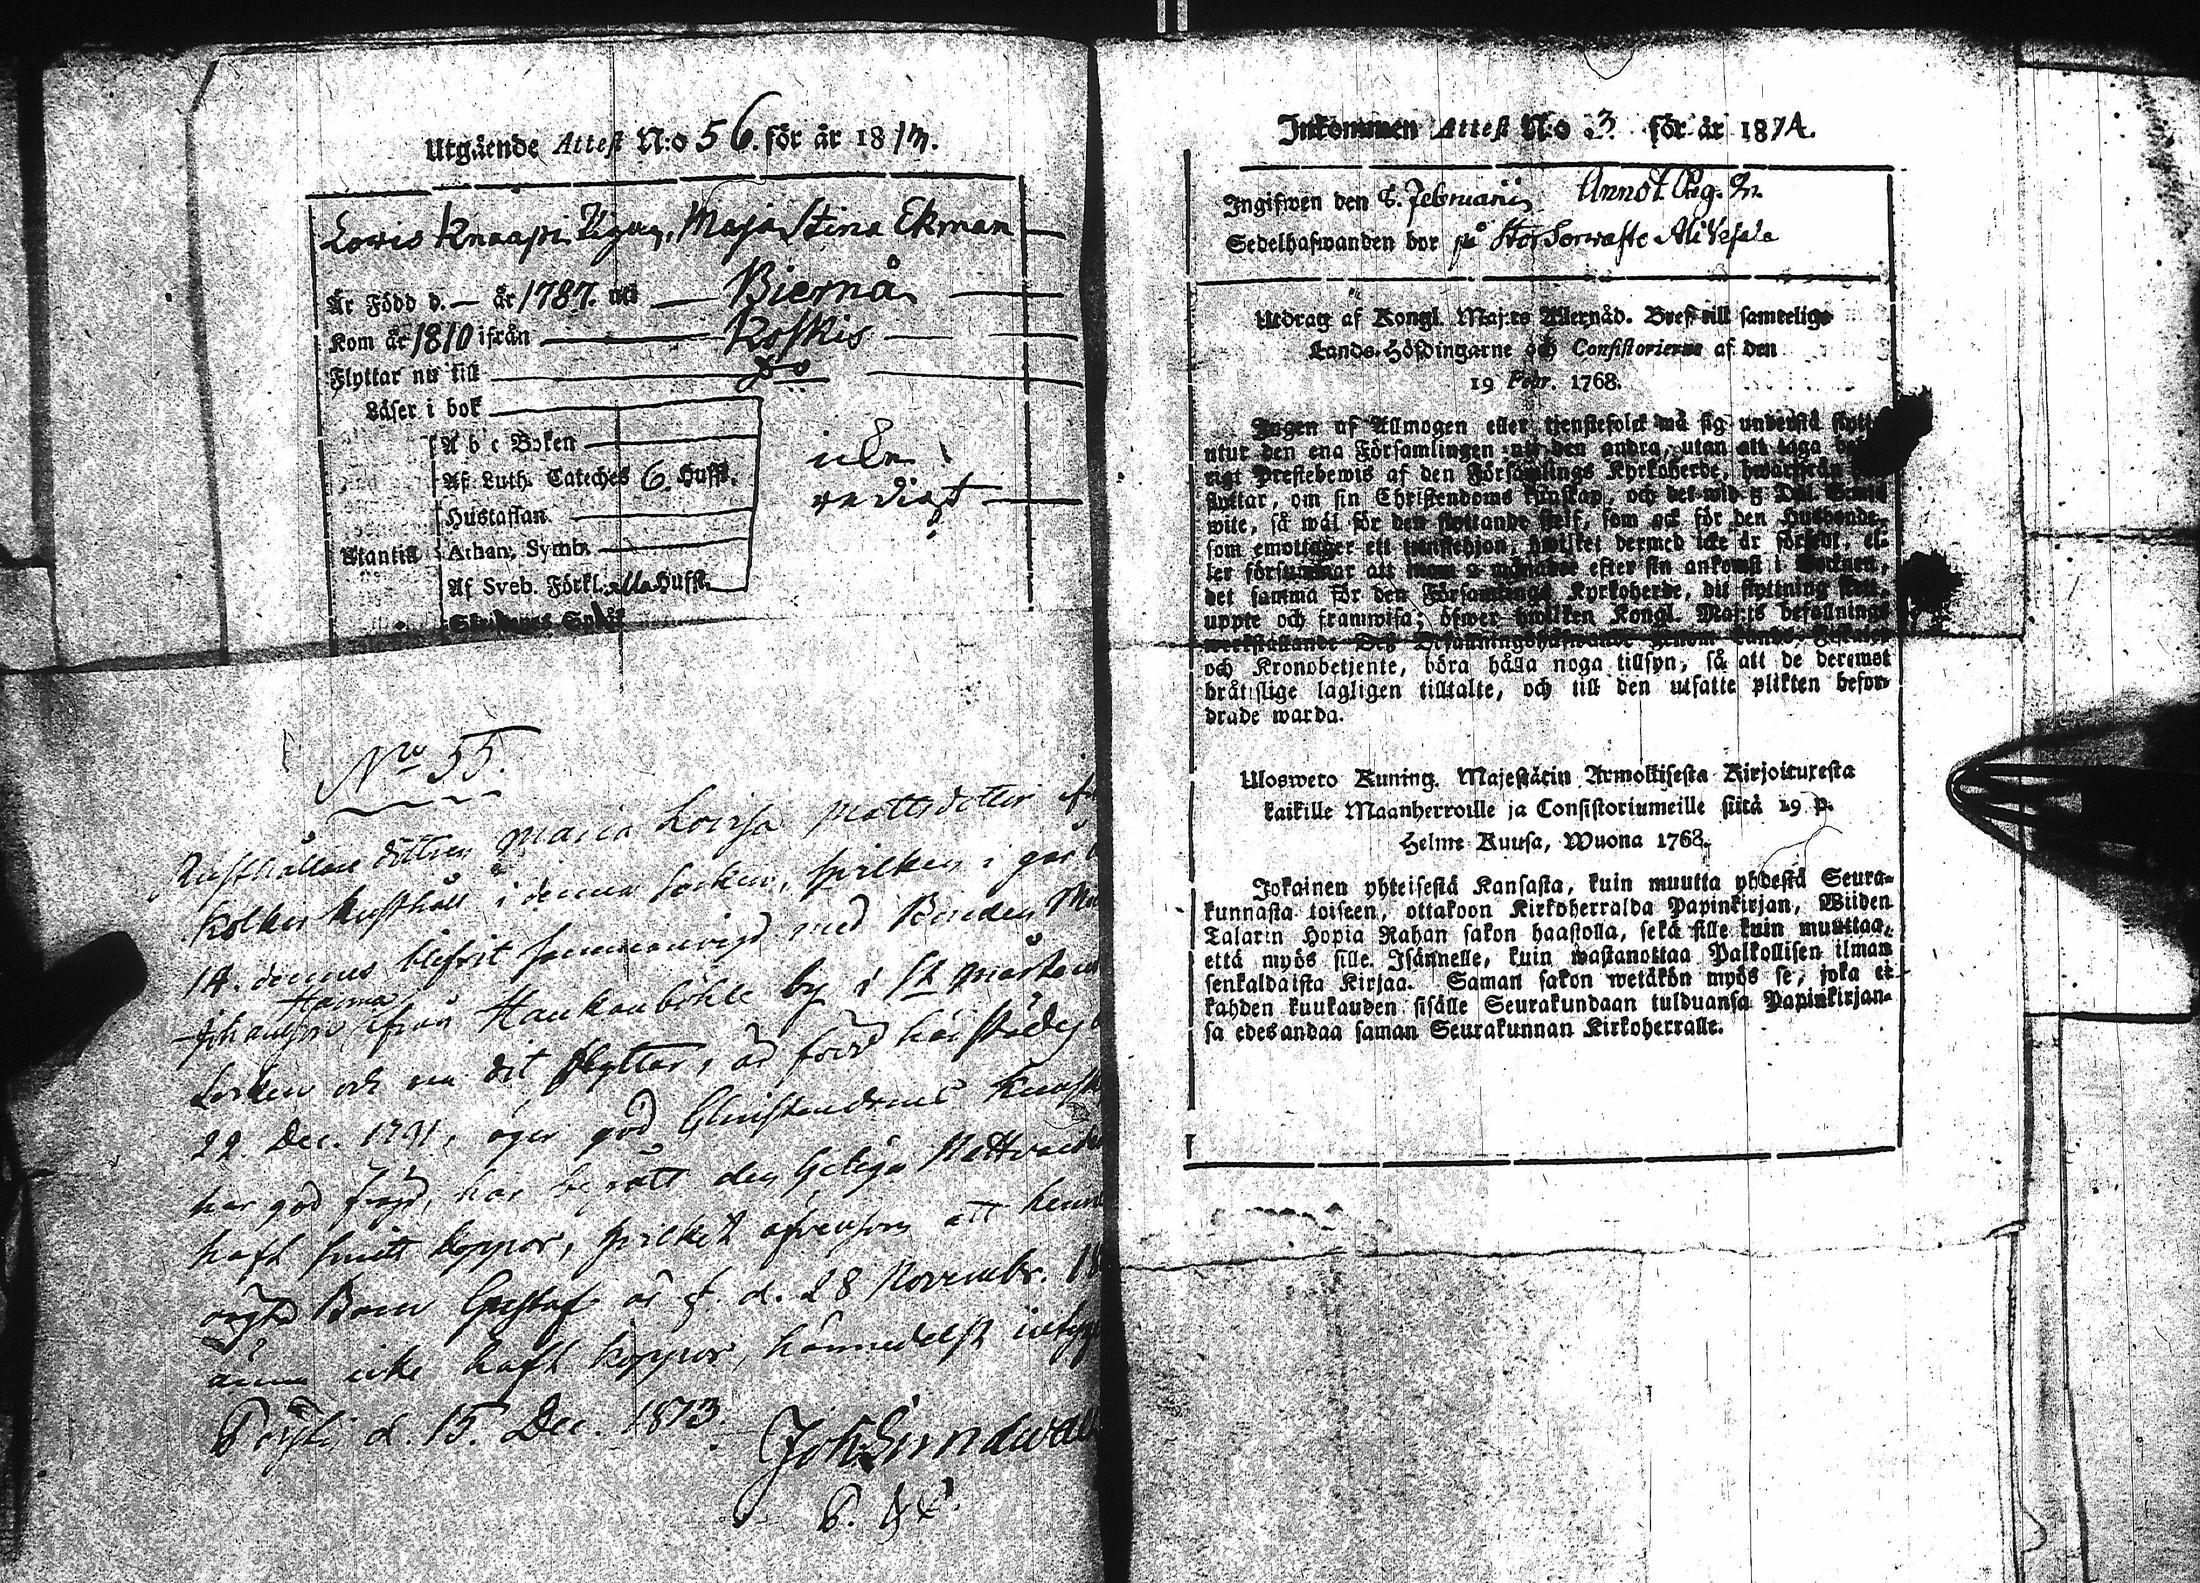 Utgående Attest N:o 56. för år 1813.
Lovis Knaapi Pigan, Maja Stina Ekman
Är Född d. — år 1787. uti Biernå
Kom år 1810 ifrån Koskis
Flyttar nu till Do
Läser i bok
A b c Boken
Af Luth. Cateches 6. Hufst.
Hustaflan
Utantill Athan. Symb.
Af Sveb. Förkl. alla Hufst.
icke
No 55.
Rusthållare dottren Maria Lovisa Mattsdotter
Rusthåll i denna Socken, hvilken i går
14. dennes blifvit sammanvigd med Bonden
Johansson ifrån Haukanböhle by i St Mårtens
Socken och nu dit flyttar, är född härstädes
22. Dec. 1791, äger god Christendoms
har god frejd, har begått den heliga Nattvarden
haft koppor, hvilket äfvensom att
Barn Gustaf är f. d. 28 November.
ännu icke haft koppor, härmedelst
d. 15. Dec. 1813.
Joh Sundwall
Inkommen Attest N:o 3. för år 1814.
Ingifwen den 8. Februarii Annot. Pag.
Sedelhafwanden bor på Ali Vesala
Utdrag af Kongl. Maj:ts Allernåd. Bref till samtelige
Lands-Höfdingarne och Consistorierne af den
19 Febr. 1768.
Ingen af Allmogen eller tjenstefolck må sig understå flytta
utur den ena Församlingen uti den andra, utan att taga
rigt Prestebewis af den Församlings Kyrkoherde, hwarifrån
flyttar, om sin Christendoms kunskap, och det wid 5 Dal. S:mts
wite, så wäl för den flyttande sjelf, som ock för den Husbonde,
som emottager ett tjenstehjon, hwilket dermed icke är försedt, el-
ler försummar att inom 2 månader efter sin ankomst i Socknen,
det samma för den Församlings Kyrkoherde, dit flyttning sker,
uppte och framwisa; öfwer hwilken Kongl. Maj:ts befallnings
werkställande Des Befallningshafwande genom Lands-Fiskaler
och Kronobetjente, böra hålla noga tillsyn, så att de deremot
bråtslige lagligen tilltalte, och till den utsatte plikten befor-
drade warda.
Ulosweto Kuning. Majestätin Armollisesta Kirjoituxesta
kaikille Maanherroille ja Consistoriumeille siitä 19 p.
Helme Kuusa, Wuona 1768.
Jokainen yhteisestä Kansasta, kuin muutta yhdestä Seura-
kunnasta toiseen, ottakoon Kirkoherralda Papinkirjan, Wiiden
Talarin Hopia Rahan sakon haastolla, sekä sille kuin muuttaa,
että myös sille Isännelle, kuin wastanottaa Palkollisen ilman
senkaldaista Kirjaa. Saman sakon wetäkön myös se, joka ei
kahden kuukauden sisälle Seurakundaan tulduansa Papinkirjan-
sa edesandaa saman Seurakunnan Kirkoherralle.